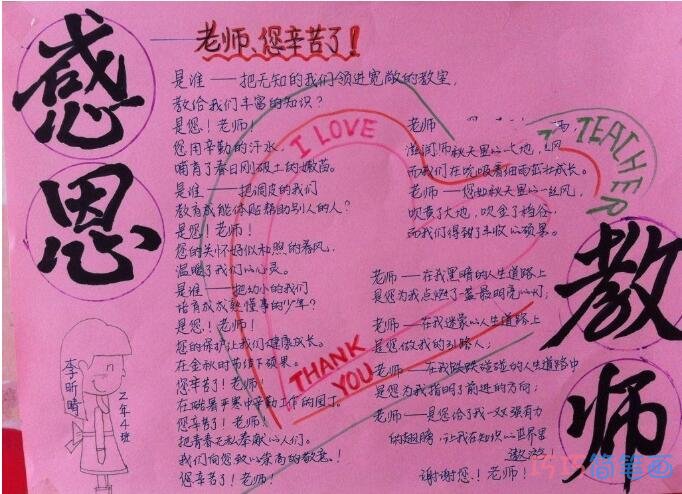 感恩
教师
老师、您辛苦了!
是谁——把无知的我们领进宽敞的教室,
教给我们丰富的知识?
是您!老师!
您用辛勤的汗水,
哺育了春日刚破土的嫩苗。
是谁——把调皮的我们
教育成能体贴帮助别人的人?
是您!老师!
您的关怀好似和煦的春风,
温暖了我们的心灵。
是谁——把幼小的我们
培育成成熟懂事的少年?
是您!老师!
您的保护让我们健康成长。
在金秋时节结下硕果。
您辛苦了!老师!
在酷暑严寒中辛勤工作的园丁。
您辛苦了!老师!
把青春无私奉献的人们。
我们向您致以崇高的敬意!
您辛苦了!老师!
I LOVE
TEACHER
THANK
YOU
老师
而我们在吮吸着细雨茁壮成长。
老师——您如秋天里的一丝风
吹黄了大地,吹金了稻谷
而我们得到了丰收的硕果。
老师——在我黑暗的人生道路上
是您为我点燃了一盏最明亮的灯;
老师——在我迷蒙的人生道路上
是您做我的引路人;
老师——在我跌跌碰碰的人生道路中
是您为我指明了前进的方向;
老师——是您给了我一双强有力
的翅膀,让我在知识的世界里
遨游
谢谢您!老师!
李昕晴
2年4班
巧巧简笔画